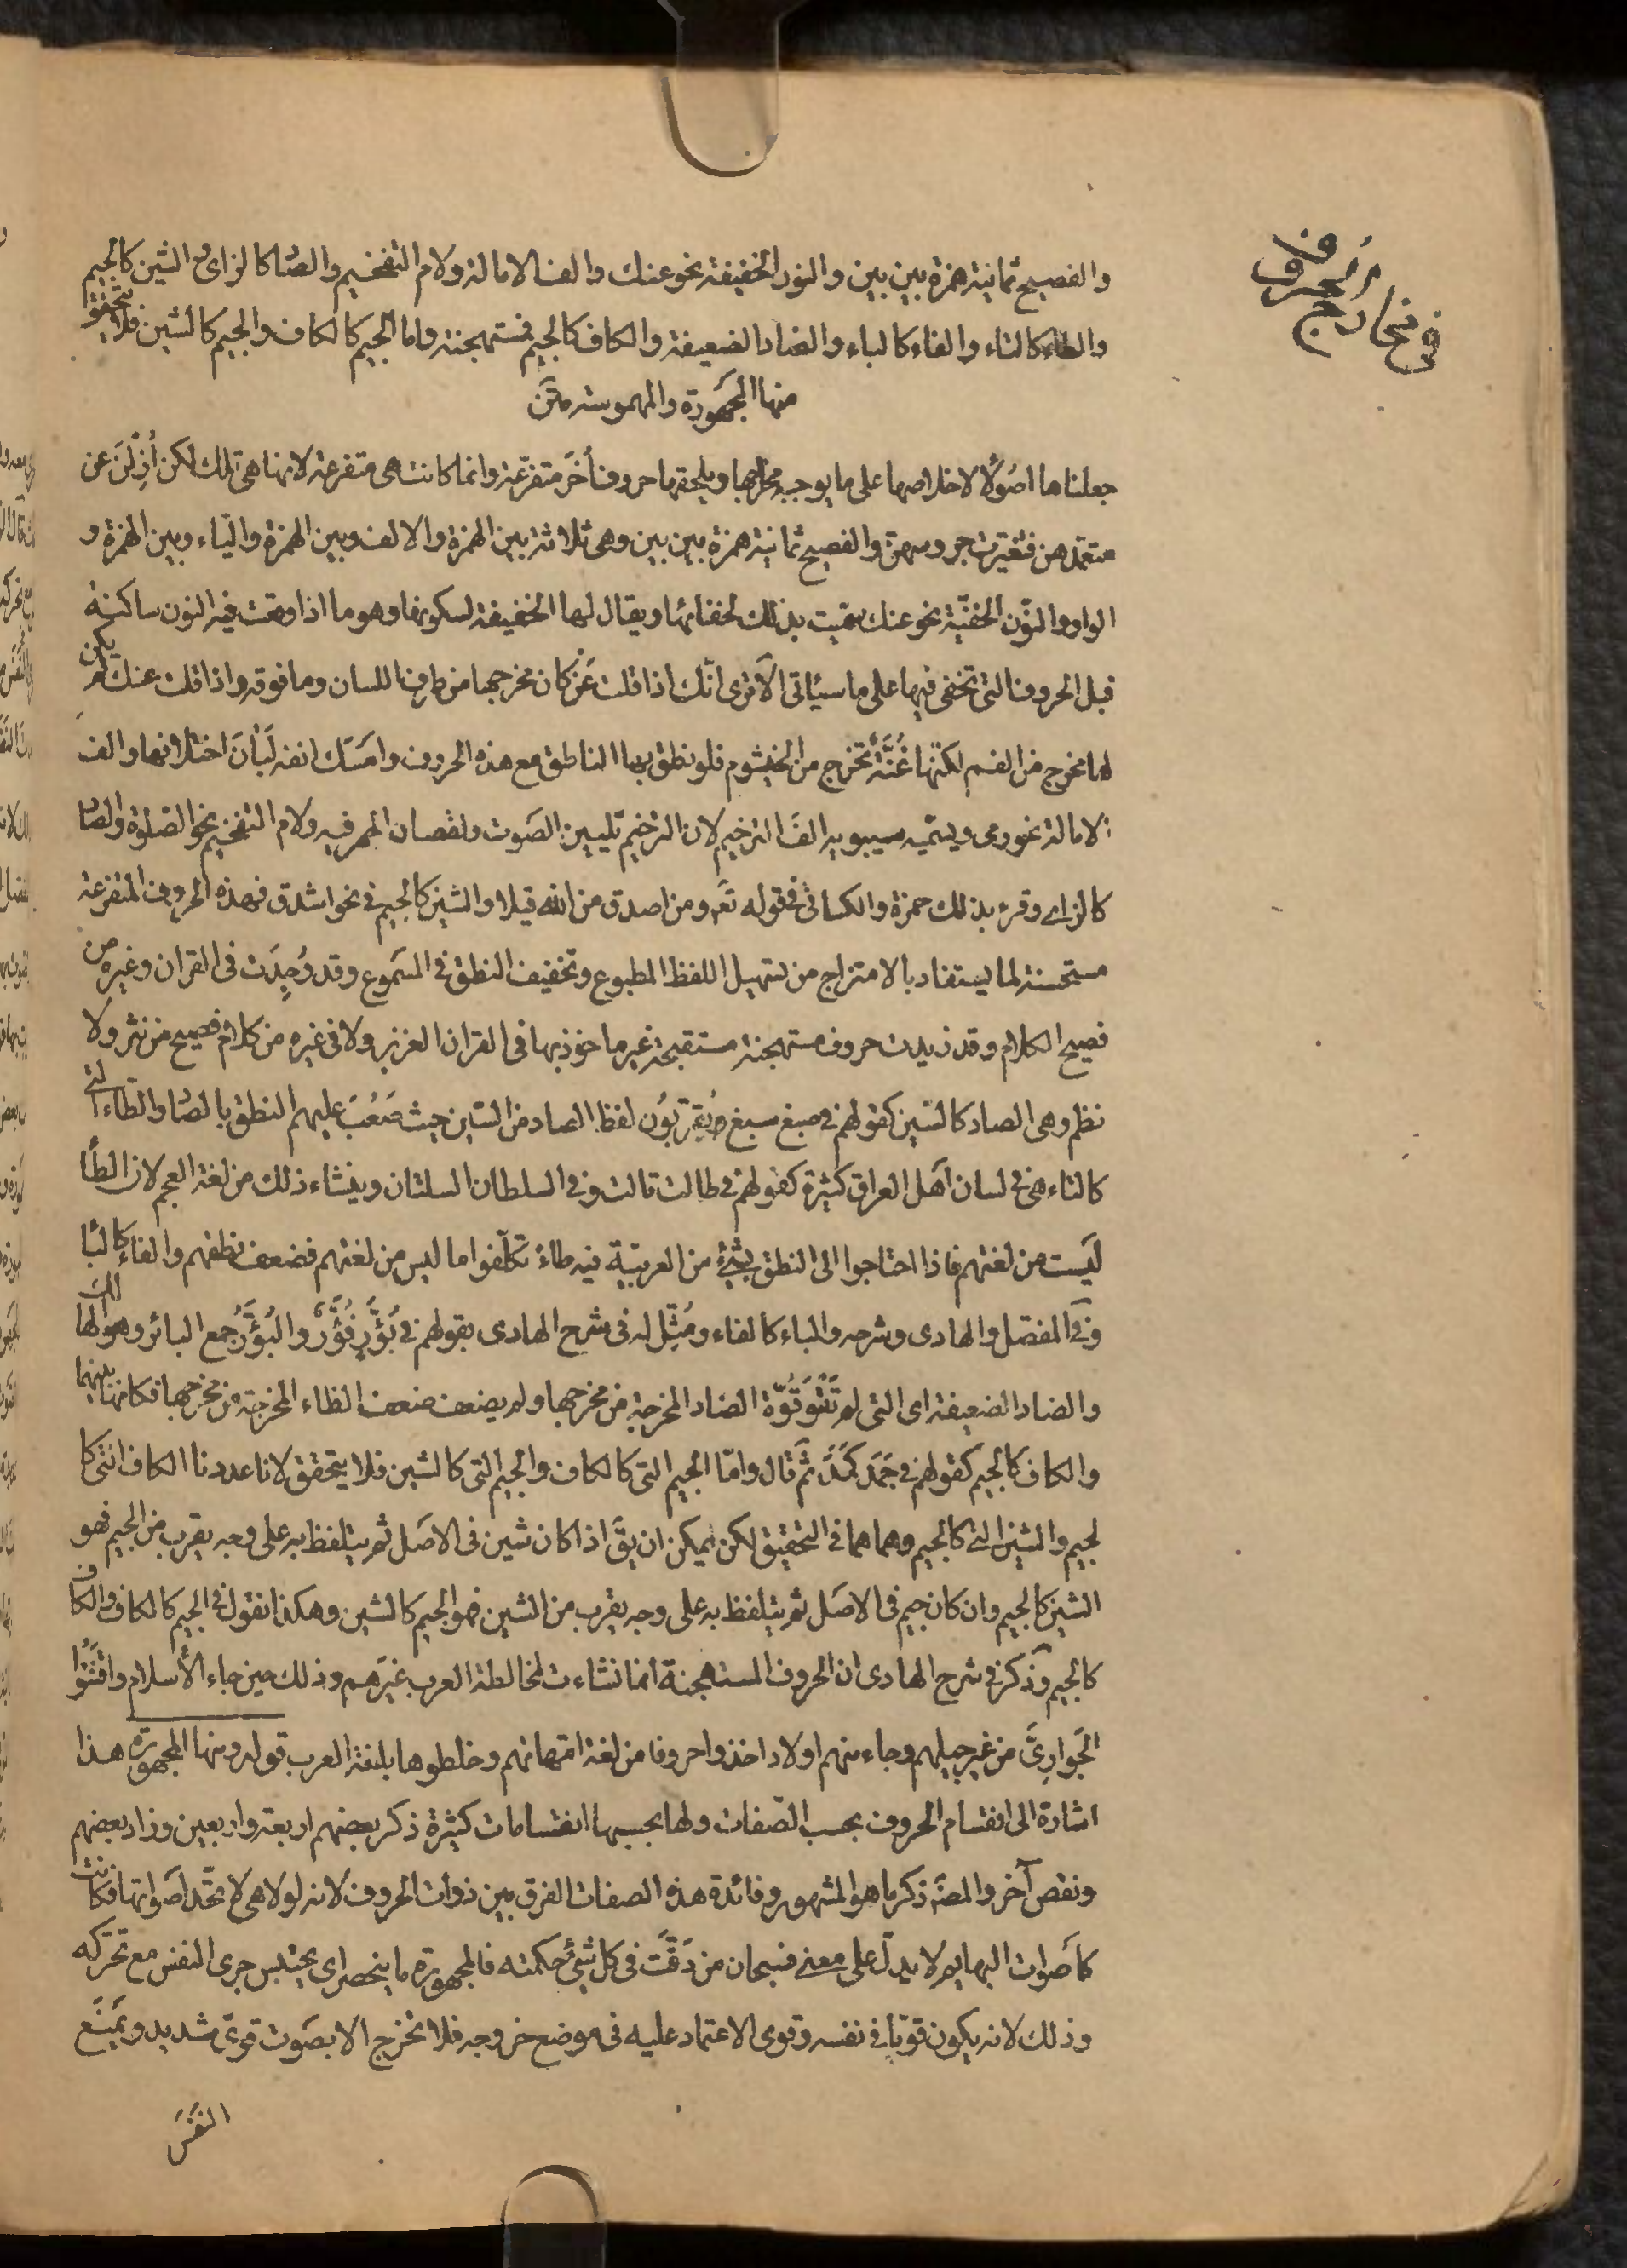 في مخارج الحروف
والفصيح ثمانية همزة بين بين والنون الخفيفة نحو عنك والف الامالة ولام التفخيم والصاد كالزاى والشين كالجيم
والطاء كالتاء والفاء كالباء والضاد الضعيفة والكاف كالجيم فمستهجنة واما الجيم كالكاف والجيم كالشين فلا يتحقق
منها المجهورة والمهموسة متن
جعلناها اصُولًا لاخلاصها على ما يوجبه مخرجها ويلحقها حروف اُخَر متفرّعة وانما كانت هى متفرعة لانها هى تلك لكن اُزِلْنَ عن
معتمدهن فتغيرت جروسهن والفصيح ثمانية همزة بين بين وهى ثلاثة بين الهمزة والالف وبين الهمزة والياء وبين الهمزة و
الواو والنّون الخفيّة نحو عنك سمّيت بذلك لخفائها ويقال لها الخفيفة لسكونها وهو ما اذا وقعت فيه النون ساكنة
قبل الحروف التى تخفى فيها على ما سيأتى الَا ترى انّك اذا قلت عَنْ كان مخرجها من طرف اللسان وما فوقه واذا قلت عنك لم يكن
لها مخرج من الفم لكنّها غُنَّةٌ تخرج من الخيشوم فلو نطق بها الناطق مع هذه الحروف وامسَك انفه لَبَانَ اختلافها والف
الامالة نحو رمى ويسمّيه سيبويه الفَ الترخيم لان الترخيم تليين الصَوت ونقصان الجهر فيه ولام التفخيم نحو الصلوة والصاد
كالزاى وقرء بذلك حمزة والكسائى فى قوله تعَ ومن اصدق من الله قيلا والشين كالجيم فى نحو اشدق فهذه الحروف المتفرعة
مستحسنة لما يستفاد بالامتزاج من تسهيل اللفظ المطبوع وتخفيف النطق فى المسَموع وقد وُجِدَت فى القران وغيره من
فصيح الكلام وقد زيدت حروف مستهجنة مستقبحة غير ماخوذ بها فى القران العزيز ولا فى غيره من كلام فصيح من نثر ولا
نظم وهى الصاد كالسّين كقولهم فى صبغ سبغ يُقرّبُون لفظ الصاد من السّين حيث صَعُبَ عليهم النطق بالصاد والطّاء التى
كالتاء هى فى لسان اَهل العراق كثيرة كقولهم فى طالت تالت وفى السلطان السلتان وينشاء ذلك من لغة العجم لان الطّاء
ليَست من لغتهم فاذا احتاجوا الى النطق بشئ من العربيّة فيه طاء تكلّفوا ما ليس من لغتهم فضعف نطقهم والفاء كالباء
وفى المفصّل والهادى وشرحه والباء كالفاء ومُثّل له فى شرح الهادى بقولهم فى بُؤَّرٍ فُؤَّرٌ والبُؤَّرُ جمع البائر وهو الهالك
والضاد الضعيفة اى التى لم تَقْوَ قُوّة الضاد المخرجة من مخرجها ولم يضعف ضعف الظاء المخرجة من مخرجها فكانها بينهما
والكاف كالجيم كقولهم فى جَمَد كَمَدَ ثم قال وامّا الجيم التى كالكاف والجيم التى كالشين فلا يتحقق لانا عددنا الكاف التى كا
لجيم والشين التى كالجيم وهما هما فى التحقيق لكن يمكن ان يقَ اذا كان شين فى الاصَل ثم يتلفظ به على وجه يقرب من الجيم فهو
الشين كالجيم وان كان جيم فى الاصَل ثم يتلفظ به على وجه يقرب من الشين فهو الجيم كالشين وهكذا نقول فى الجيم كالكاف والكاف
كالجيم وذكر فى شرح الهادى ان الحروف المستهجنة انما نشاءت لمخالطة العرب غيرَهم وذلك حين جاء الأسلام واقتَنَوُا
الجَوارِىَ من غير جيلهم وجاء منهم اولاد اخذوا حروفا من لغة امّهاتهم وخلطوها بلغة العرب قوله ومنها المجهورة هذا
اشارة الى انقسام الحروف بحسب الصّفات ولها بحسبها انقسامات كثيرة ذكر بعضهم اربعة واربعين وزاد بعضهم
ونقص آخر والمصَ ذكر ما هو المشهور وفائدة هذه الصفات الفرق بين ذوات الحروف لانه لولا هى لاتحّد اصَواتها فكانت
كاَصوات البهايم لا يدلّ على معنى فسبحان من دَقَّت فى كل شئ حكمته فالمجهورة ما ينحصر اى يحتبس جرى النفس مع تحرّكه
وذلك لانه يكون قويّا فى نفسه وقوى الاعتماد عليه فى موضع خروجه فلا تخرج الا بصَوت قوىّ شديد ويمنَع
النفَسَ